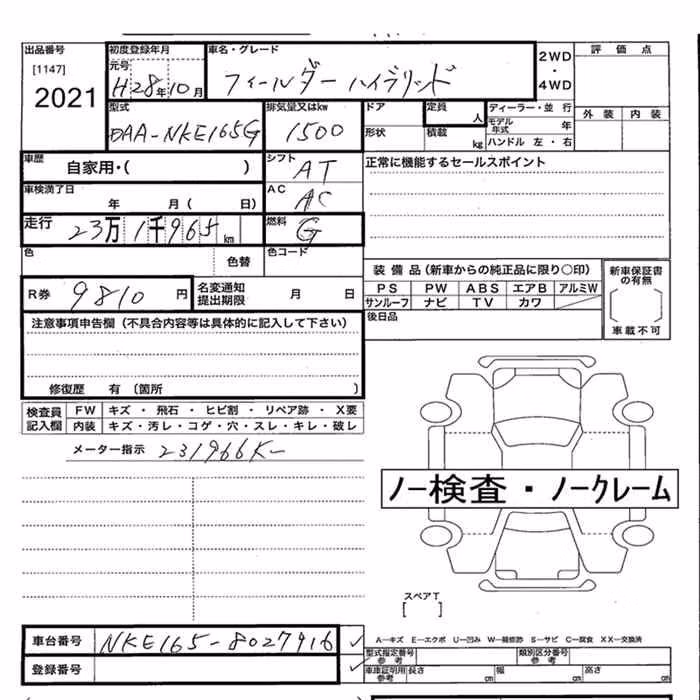 出品番号
[1147]
2021
初度登録年月
元号
H28年10月
車名・グレード
フィールダーハイブリッド
2WD
・
4WD
評価点
外装 内装
型式
DAA-NKE165G
排気量又はkw
1500
ドア
形状
定員
人
積載
kg
ディーラー・並行
モデル年式 年
ハンドル 左・右
車歴
自家用・( )
シフト
AT
正常に機能するセールスポイント
車検満了日
年 月( 日)
AC
AC
走行
23万1千965km
燃料
G
色
色替
色コード
装備品(新車からの純正品に限り○印)
PS PW ABS エアB アルミW
サンルーフ ナビ TV カワ
新車保証書の有無
車載不可
R券 9810円
名変通知
提出期限
月 日
後日品
注意事項申告欄(不具合内容等は具体的に記入して下さい)
修復歴 有(箇所 )
検査員記入欄
FW キズ・飛石・ヒビ割・リペア跡・X要
内装 キズ・汚レ・コゲ・穴・スレ・キレ・破レ
メーター指示 231966K-
ノー検査・ノークレーム
スペアT
[ ]
車台番号 NKE165-8027916
登録番号
A-キズ E-エクボ U-凹み W-補修跡 S-サビ C-腐食 XX-交換済
型式指定番号 参考
類別区分番号 参考
車庫証明用 参考
長さ cm 幅 cm 高さ cm